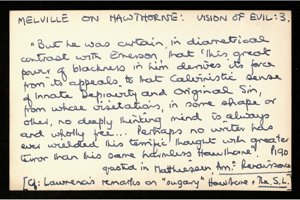 MELVILLE ON HAWTHORNE: VISION OF EVIL: 3.
"But he was certain, in diametrical
contrast with Emerson, that 'this great
power of blackness in him derives its force
from its appeals to that Calvinistic sense
of Innate Depravity and Original Sin,
from whose visitations, in some shape or
other, no deeply thinking mind is always
and wholly free... Perhaps no writer has
ever wielded this terrific thought with greater
terror than this same harmless Hawthorne.' P190
quoted in Matthiessen Am. Renaissance
[Cf: Lawrence's remarks on "sugary" Hawthorne: The S.L.]